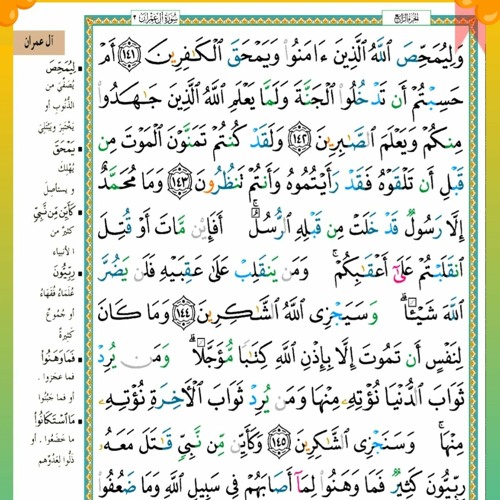 الجزء الرابع
سورة آل عمران ٣
آل عمران
وَلِيُمَحِّصَ ٱللَّهُ ٱلَّذِينَ ءَامَنُوا۟ وَيَمْحَقَ ٱلْكَٰفِرِينَ ﴿١٤١﴾ أَمْ
حَسِبْتُمْ أَن تَدْخُلُوا۟ ٱلْجَنَّةَ وَلَمَّا يَعْلَمِ ٱللَّهُ ٱلَّذِينَ جَٰهَدُوا۟
مِنكُمْ وَيَعْلَمَ ٱلصَّٰبِرِينَ ﴿١٤٢﴾ وَلَقَدْ كُنتُمْ تَمَنَّوْنَ ٱلْمَوْتَ مِن
قَبْلِ أَن تَلْقَوْهُ فَقَدْ رَأَيْتُمُوهُ وَأَنتُمْ تَنظُرُونَ ﴿١٤٣﴾ وَمَا مُحَمَّدٌ
إِلَّا رَسُولٌ قَدْ خَلَتْ مِن قَبْلِهِ ٱلرُّسُلُ ۚ أَفَإِي۟ن مَّاتَ أَوْ قُتِلَ
ٱنقَلَبْتُمْ عَلَىٰٓ أَعْقَٰبِكُمْ ۚ وَمَن يَنقَلِبْ عَلَىٰ عَقِبَيْهِ فَلَن يَضُرَّ
ٱللَّهَ شَيْـًٔا ۗ وَسَيَجْزِى ٱللَّهُ ٱلشَّٰكِرِينَ ﴿١٤٤﴾ وَمَا كَانَ
لِنَفْسٍ أَن تَمُوتَ إِلَّا بِإِذْنِ ٱللَّهِ كِتَٰبًا مُّؤَجَّلًا ۗ وَمَن يُرِدْ
ثَوَابَ ٱلدُّنْيَا نُؤْتِهِۦ مِنْهَا وَمَن يُرِدْ ثَوَابَ ٱلْـَٔاخِرَةِ نُؤْتِهِۦ
مِنْهَا ۚ وَسَنَجْزِى ٱلشَّٰكِرِينَ ﴿١٤٥﴾ وَكَأَيِّن مِّن نَّبِىٍّ قَٰتَلَ مَعَهُۥ
رِبِّيُّونَ كَثِيرٌ فَمَا وَهَنُوا۟ لِمَآ أَصَابَهُمْ فِى سَبِيلِ ٱللَّهِ وَمَا ضَعُفُوا۟
لِيُمَحِّصَ
يُصَفِّيَ من
الذُّنُوب أو
يَخْتَبِرَ ويَبْتَلِيَ
يَمْحَقَ
يُهْلِكَ
و يستأصِلَ
كَأَيِّن مِّن نَّبِيٍّ
كثيرٌ من
الأنبياء
رِبِّيُّونَ
عُلَمَاءُ فُقَهَاءُ
أو جُمُوعٌ
كثيرةٌ
فَمَا وَهَنُوا
فما عَجَزوا .
أو فما جَبُنُوا
مَا اسْتَكَانُوا
ما خَضَعُوا . أو
ذَلُّوا لِعَدُوِّهم